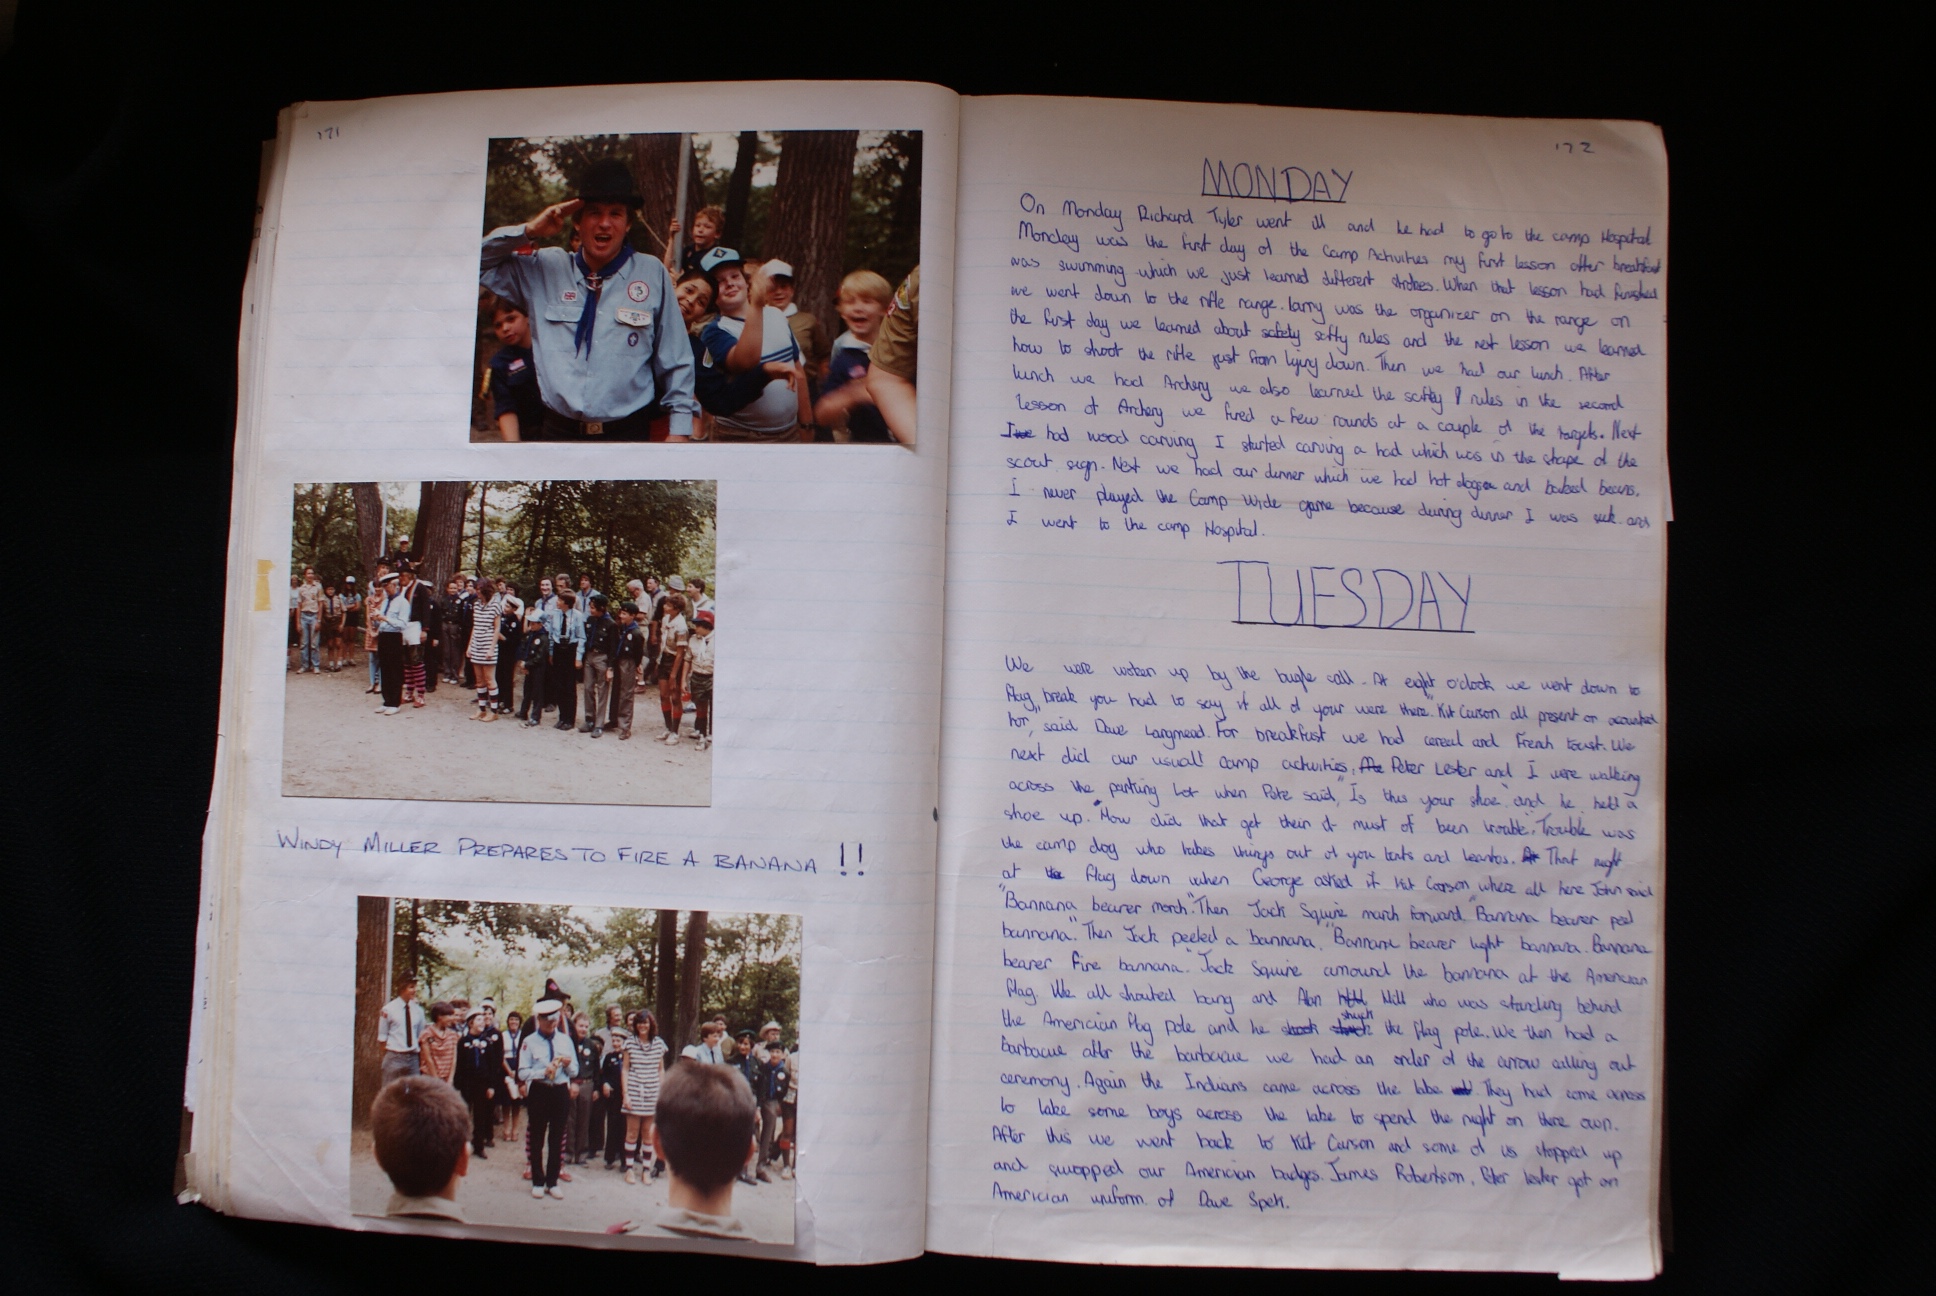 171
WINDY MILLER PREPARES TO FIRE A BANANA !!
172
MONDAY
On Monday Richard Tyler went ill and he had to go to the camp Hospital
Monday was the first day of the Camp Activities my first lesson after breakfast
was swimming which we just learned different strokes. When that lesson had finished
we went down to the rifle range. Larry was the organizer on the range on
the first day we learned about safety softy rules and the next lesson we learned
how to shoot the rifle just from lying down. Then we had our lunch. After
lunch we had Archery we also learned the softy rules in the second
lesson of Archery we fired a few rounds at a couple of the targets. Next
I had wood carving I started carving a had which was in the shape of the
scout sign. Next we had our dinner which we had hot dogs and baked beans.
I never played the Camp Wide game because during dinner I was sick and
I went to the camp Hospital.
TUESDAY
We were woken up by the bugle call. At eight o'clock we went down to
flag break you had to say if all of your were there. "Kit Carson all present or acounted
for", said Dave Langmead. For breakfast we had cereal and French toast. We
next did our usual camp activities. Peter Lester and I were walking
across the parking lot when Pete said, "Is this your shoe" and he held a
shoe up. "How did that get their it must of been trouble". Trouble was
the camp dog who takes things out of you tents and leantos. That night
at flag down when George asked if Kit Carson where all here John said
"Bannana bearer march". Then Jack Squire march forward. "Bannana bearer peel
bannana". Then Jack peeled a bannana. "Bannana bearer light bannana. Bannana
bearer fire bannana." Jack Squire the bannana at the American
flag. We all shouted bang and Alan Hill who was standing behind
the American flag pole and he shuck the flag pole. We then had a
barbacue after the barbecue we had an order of the arrow calling out
ceremony. Again the Indians came across the lake. They had come across
to take some boys across the lake to spend the night on there own.
After this we went back to Kit Carson and some of us stopped up
and swopped our American badges. James Robertson, Peter Lester got an
American uniform of Dave Spek.